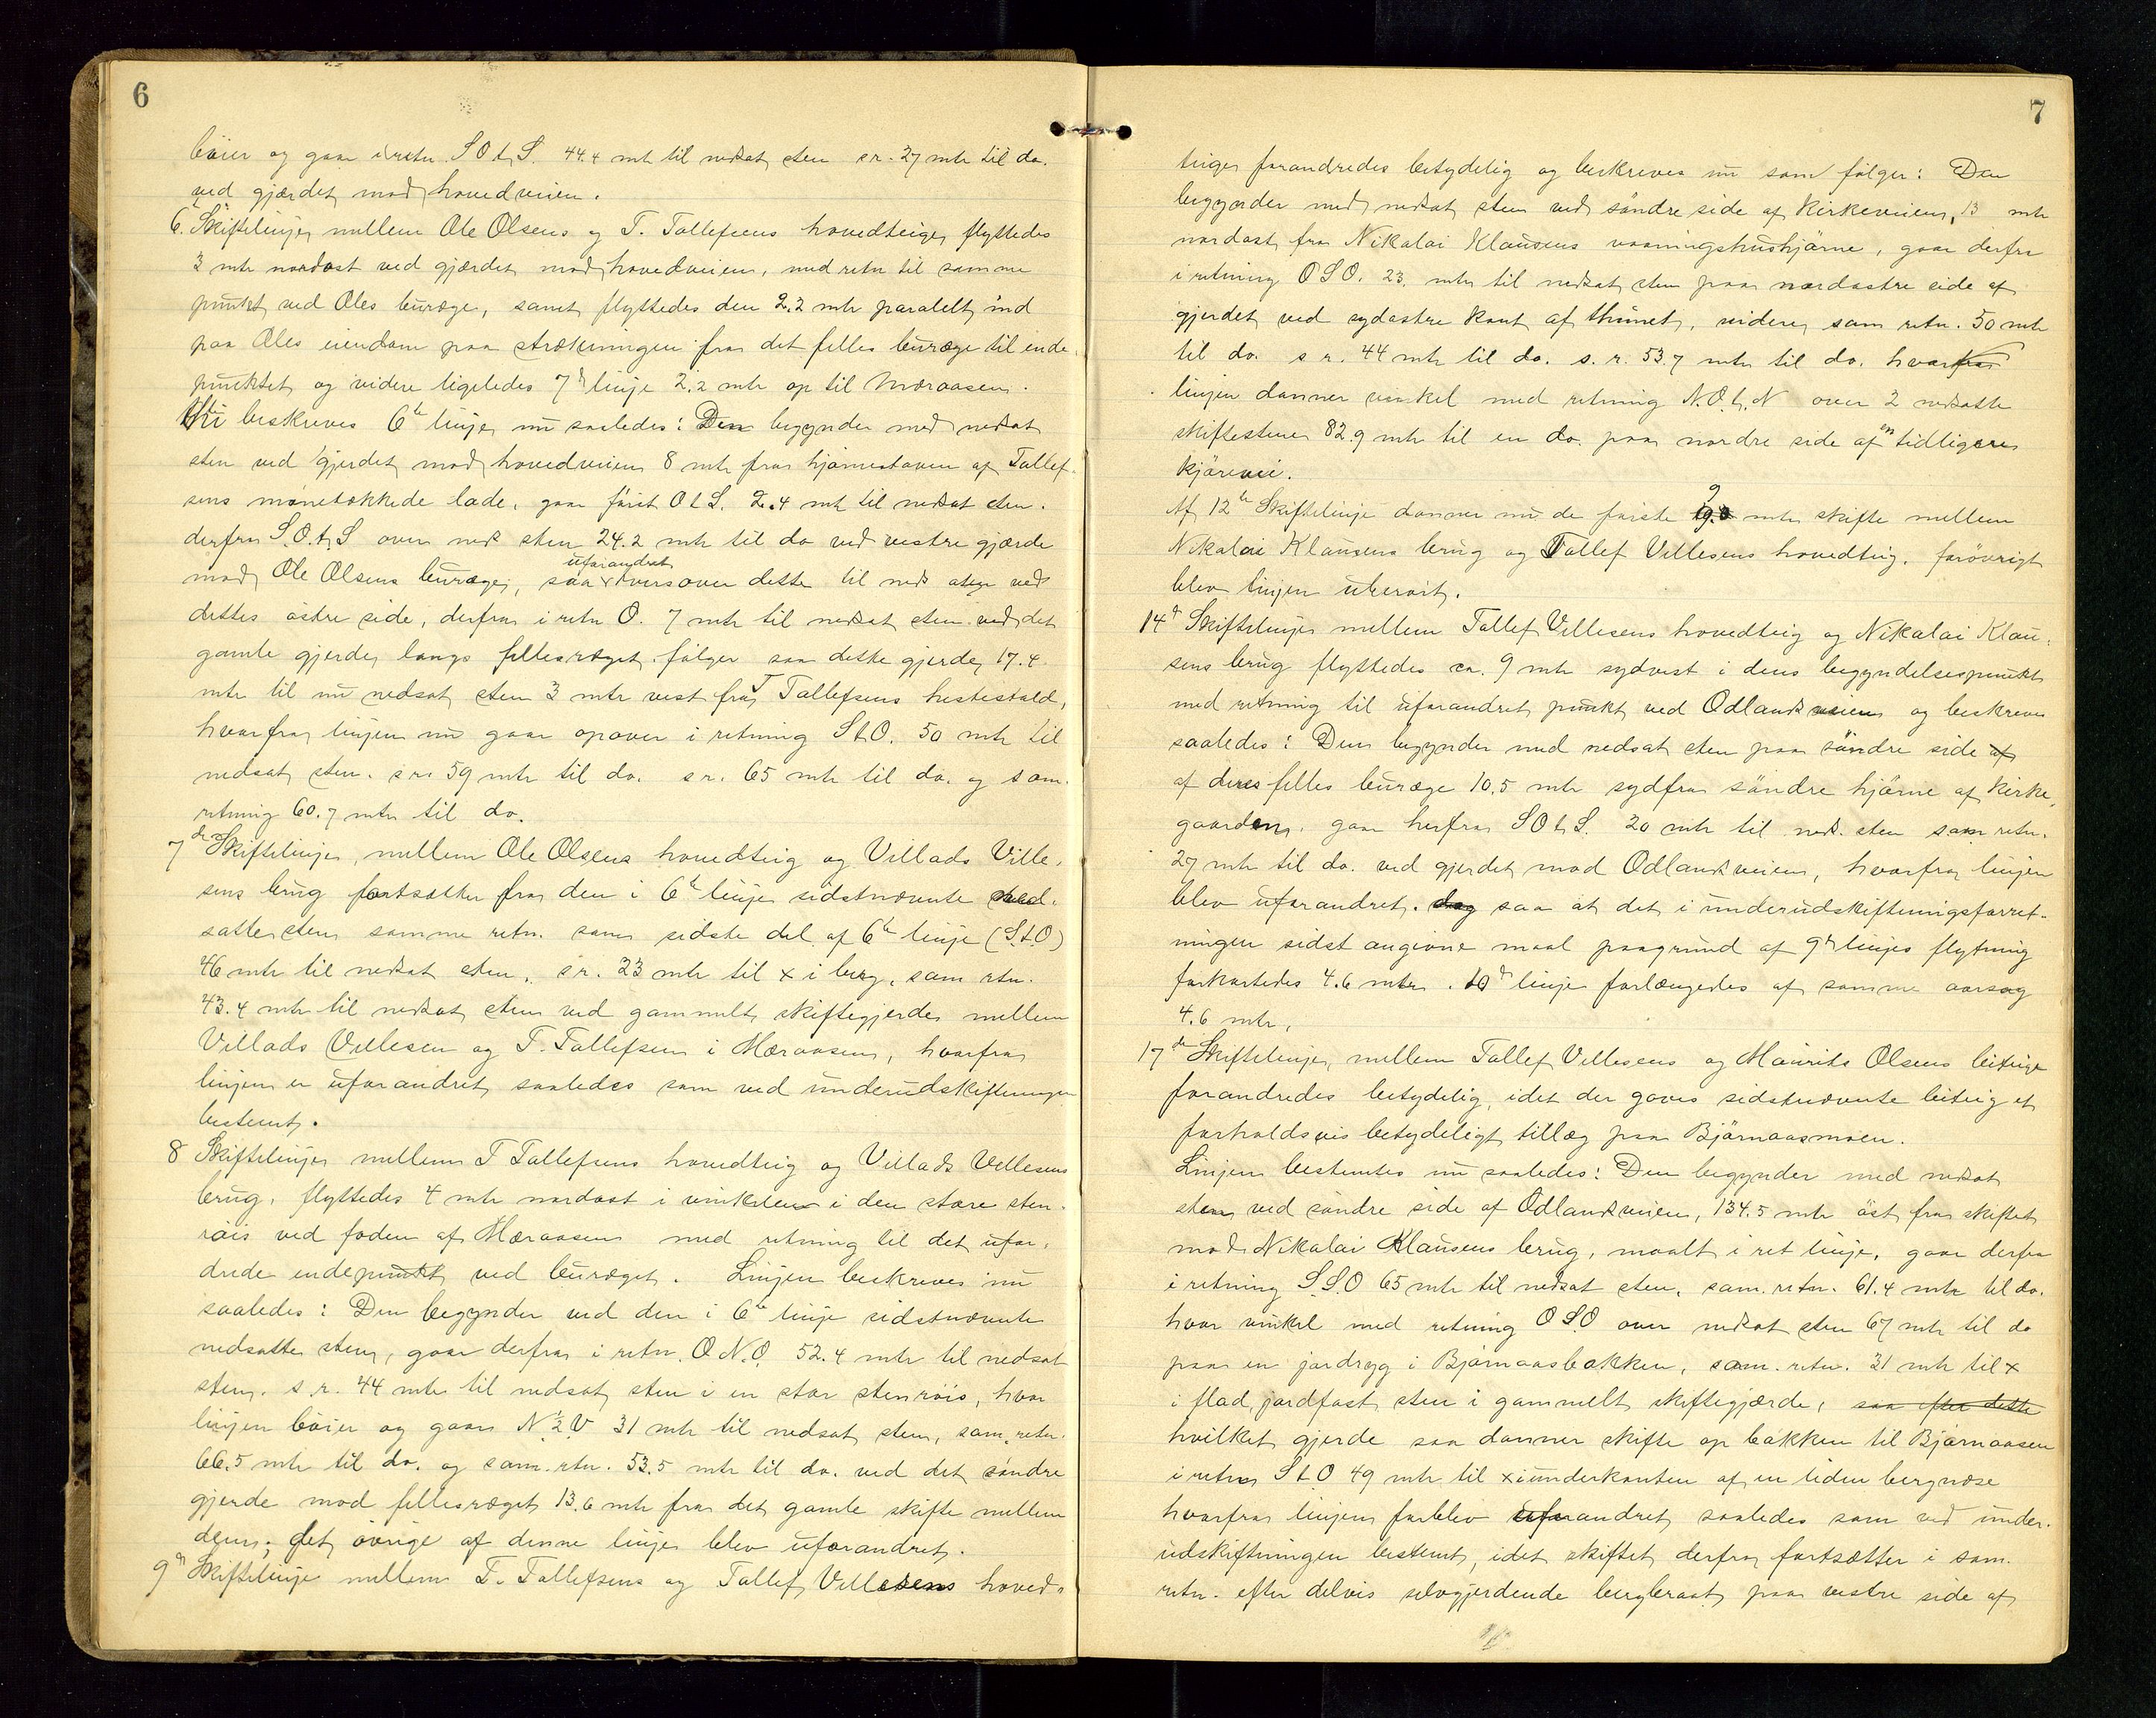 6
böier og gaar i retn. S O t. S. 44.4 mtr til nedsat sten s r. 27 mtr til do.
ved gjærdet mod hovedveien.
6. Skiftelinje mellem Ole Olsens og T. Tallefsens hovedteige flyttedes
3 mtr nordost ved gjærdet mod hovedveien, med retn til samme
punkt ved Oles buræge, samt flyttedes den 2.2 mtr paralelt ind
paa Oles eiendom paa strækningen fra det felles buræge til ende
punktet og videre ligeledes 7de linje 2.2 mtr op til Mæraasen.
beskreves 6te linje nu saaledes: Den begynder med nedsat
sten ved gjerdet mod hovedveien 8 mtr fra hjørnestaven af Tallef-
sens mønetækkede lade, gaar först O t S. 2.4 mtr til nedsat sten.
derfra S.O.t.S over neds sten 24.2 mtr til do ved vestre gjærde
uforandret
mod Ole Olsens buræge, saa x tvers over dette til neds sten ved
dettes östre side, derfra i retn O. 7 mtr til nedsat sten ved det
gamle gjerde langs fellesræget. fölger saa dette gjerde 17.4
mtr til nu nedsat sten 3 mtr vest fra T Tallefsens hestestald,
hvorfra linjen nu gaar opover i retning S t O. 50 mtr til
nedsat sten. s r. 59 mtr til do. s r. 65 mtr til do. og sam.
retning 60.7 mtr til do.
7de Skiftelinje, mellem Ole Olsens hovedteig og Villads Ville-
sens brug fortsætter fra den i 6te linje sidstnævnte ned-
satte sten samme retn. som sidste del af 6te linje (S.t.O)
46 mtr til nedsat sten, s r. 23 mtr til x i berg, sam retn.
43.4 mtr til nedsat sten ved gammelt skiftegjerde mellem
Villads Villesen og T. Tallefsen i Mæraasen, hvorfra
linjen er uforandret saaledes som ved underudskiftningen
bestemt.
8 Skiftelinje mellem T Tallefsens hovedteig og Villads Villesens
brug, flyttedes 4 mtr nordost i vinkelen i den store sten-
röis ved foden af Mæraasen med retning til det ufor-
drede endepunkt ved buræget. Linjen beskreves nu
saaledes: Den begynder ved den i 6te linje sidstnævnte
nedsatte sten, gaar derfra i retn. O N.O. 52.4 mtr til nedsat
sten. s r. 44 mtr til nedsat sten i en stor stenröis, hvor
linjen böier og gaar N ½ V 31 mtr til nedsat sten, sam. retn.
66.5 mtr til do. og sam. retn. 53.5 mtr til do. ved det söndre
gjerde mod fellesræget 13.6 mtr fra det gamle skifte mellem
dem; det övrige af denne linje blev uforandret.
9de Skiftelinje mellem T. Tallefsens og Tallef Villesens hoved-
7
teiger forandredes betydelig og beskreves nu som fölger: Den
begynder med nedsat sten ved söndre side af Kirkeveien, 13 mtr
nordost fra Nikolai Klausens vaaningshushjörne, gaar derfra
i retning O S O. 23. mtr til nedsat sten paa nordostre side af
gjerdet ved sydostre kant af thunet, videre sam retn. 50 mtr
til do. s r. 44 mtr til do. s. r. 53.7 mtr til do. hvorfra
linjen danner vinkel med retning N.O.t.N over 2 nedsatte
skiftestene 82.9 mtr til en do. paa nordre side af en tidligere
kjörevei.
Af 12te Skiftelinje danner nu de förste 9 mtr skifte mellem
Nikolai Klausens brug og Tallef Villesens hovedteig. forövrigt
blev linjen uberört.
14de Skiftelinje mellem Tallef Villesens hovedteig og Nikolai Klau-
sens brug flyttedes ca. 9 mtr sydvest i dens begyndelsespunkt
med retning til uforandret punkt ved Odlandsveien og beskreves
saaledes: Den begynder med nedsat sten paa söndre side af
af deres felles buræge 10.5 mtr syd fra söndre hjörne af kirke-
gaarden, gaar herfra S O t. S. 20 mtr til neds. sten sam retn.
27 mtr til do. ved gjerdet mod Odlandsveien, hvorfra linjen
blev uforandret. dog saa at det i underudskiftningsforret-
ningen sidst angivne maal paagrund af 9de linjes flytning
forkortedes 4.6 mtr. 10de linje forlængedes af samme aarsag
4.6 mtr.
17de Skiftelinje, mellem Tallef Villesens og Maurits Olsens beiteige
forandredes betydelig, idet der gaves sidstnævnte beiteig et
forholdsvis betydeligt tillæg paa Björnaasmoen.
Linjen bestemtes nu saaledes: Den begynder med nedsat
sten ved söndre side af Odlandsveien, 134.5 mtr öst fra skiftet
mod Nikolai Klausens brug, maalt i ret linje, gaar derfra
i retning S.S.O 65 mtr til nedsat sten, sam. retn. 61.4 mtr til do.
hvor vinkel med retning O S.O over nedsat sten 67 mtr til do
paa en jordryg i Björnaasbakken, sam. retn. 31 mtr til x
i flad, jordfast sten i gammelt skiftegjærde, saa efter dette
hvilket gjerde saa danner skifte op bakken til Björnaasen
i retn S t O 49 mtr til x i underkanten af en liden bergnæse
hvorfra linjen forblev uforandret saaledes som ved under-
udskiftningen bestemt, idet skiftet derfra fortsætter i sam.
retn. efter delvis selvgjerdende bergbraat paa vestre side af